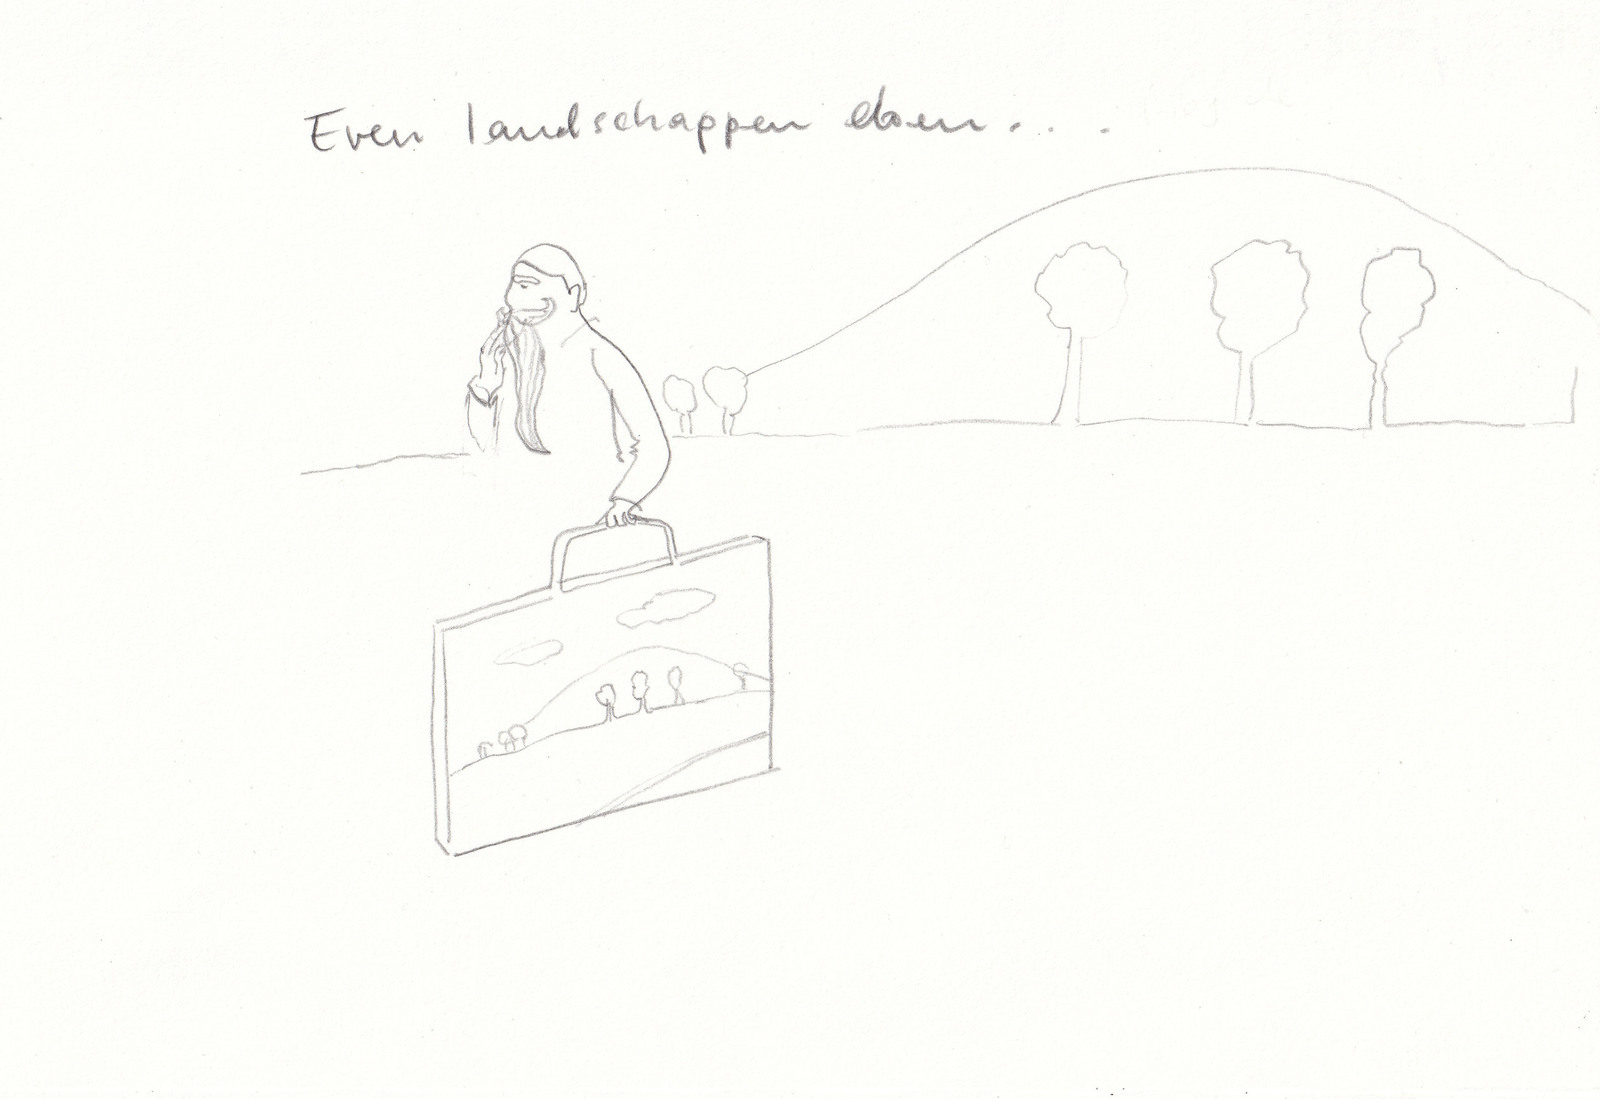 Even landschappen doen...